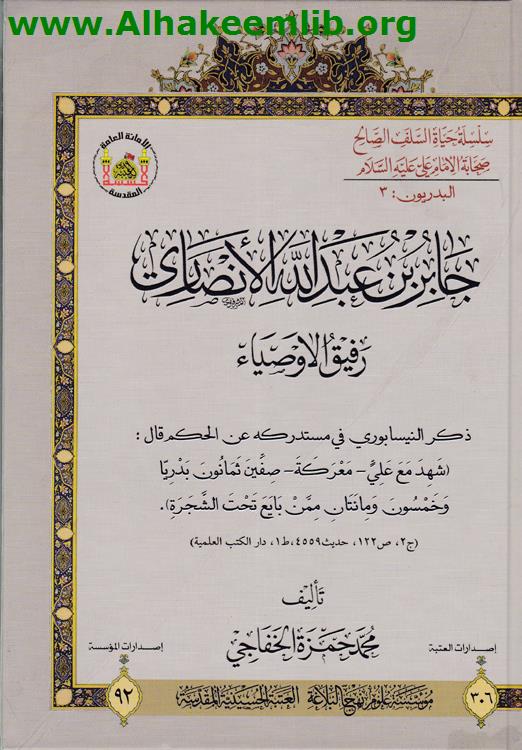 www.Alhakeemlib.org
الأمانة العامة
المقدسة
سلسلة حياة السلف الصالح
صحابة الإمام علي عليه السلام
البدريون: ٣
جابر بن عبد الله الأنصاري
رفيق الأوصياء
ذكر النيسابوري في مستدركه عن الحكم قال:
(شَهِدَ مَعَ عَليٍّ - مَعْرَكَةَ - صِفِّينَ ثَمَانُونَ بَدْرِيًّا
وَخَمْسُونَ وَمِائَتَانِ مِمَّنْ بَايَعَ تَحْتَ الشَّجَرَةِ).
(ج٢، ص١٢٢، حديث٤٥٥٩، ط١، دار الكتب العلمية)
تأليف
محمد حمزة الخفاجي
إصدارات العتبة
٣٠٦
إصدارات المؤسسة
٩٢
مؤسسة علوم نهج البلاغة العتبة الحسينية المقدسة